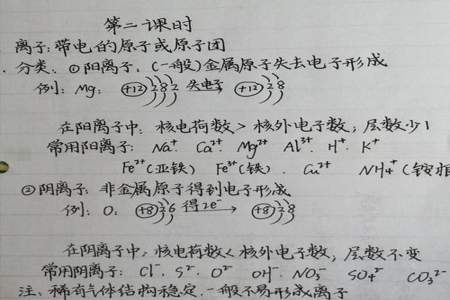 第二课时
离子:带电的原子或原子团
分类:①阳离子:(一般)金属原子失去电子形成
例:Mg: (+12) 2 8 2 失电子→ (+12) 2 8
在阳离子中:核电荷数>核外电子数,层数少1
常用阳离子: Na⁺ Ca²⁺ Mg²⁺ Al³⁺ H⁺ K⁺
Fe²⁺(亚铁) Fe³⁺(铁) Cu²⁺ NH₄⁺(铵根
②阴离子:非金属原子得到电子形成
例: O: (+8) 2 6 得2e⁻→ (+8) 2 8
在阴离子中,核电荷数<核外电子数,层数不变
常用阴离子: Cl⁻ S²⁻ O²⁻ OH⁻ NO₃⁻ SO₄²⁻ CO₃²⁻
注:稀有气体结构稳定,一般不易形成离子